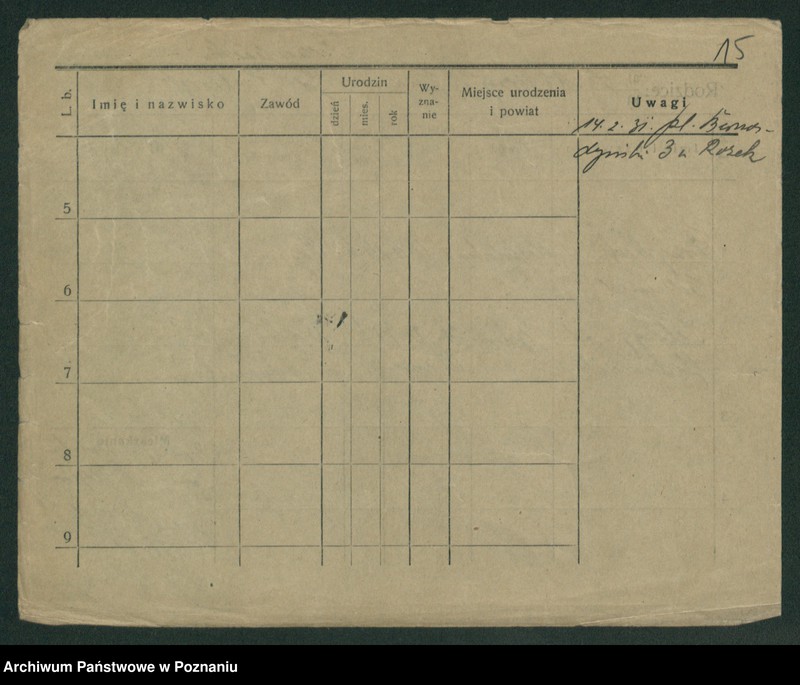 15
L. b.
Imię i nazwisko
Zawód
Urodzin
dzień
mies.
rok
Wy-
zna-
nie
Miejsce urodzenia
i powiat
Uwagi
14. 2. 31. pl. Bernar-
dyński 3 u Rozek
5
6
7
8
9
Archiwum Państwowe w Poznaniu